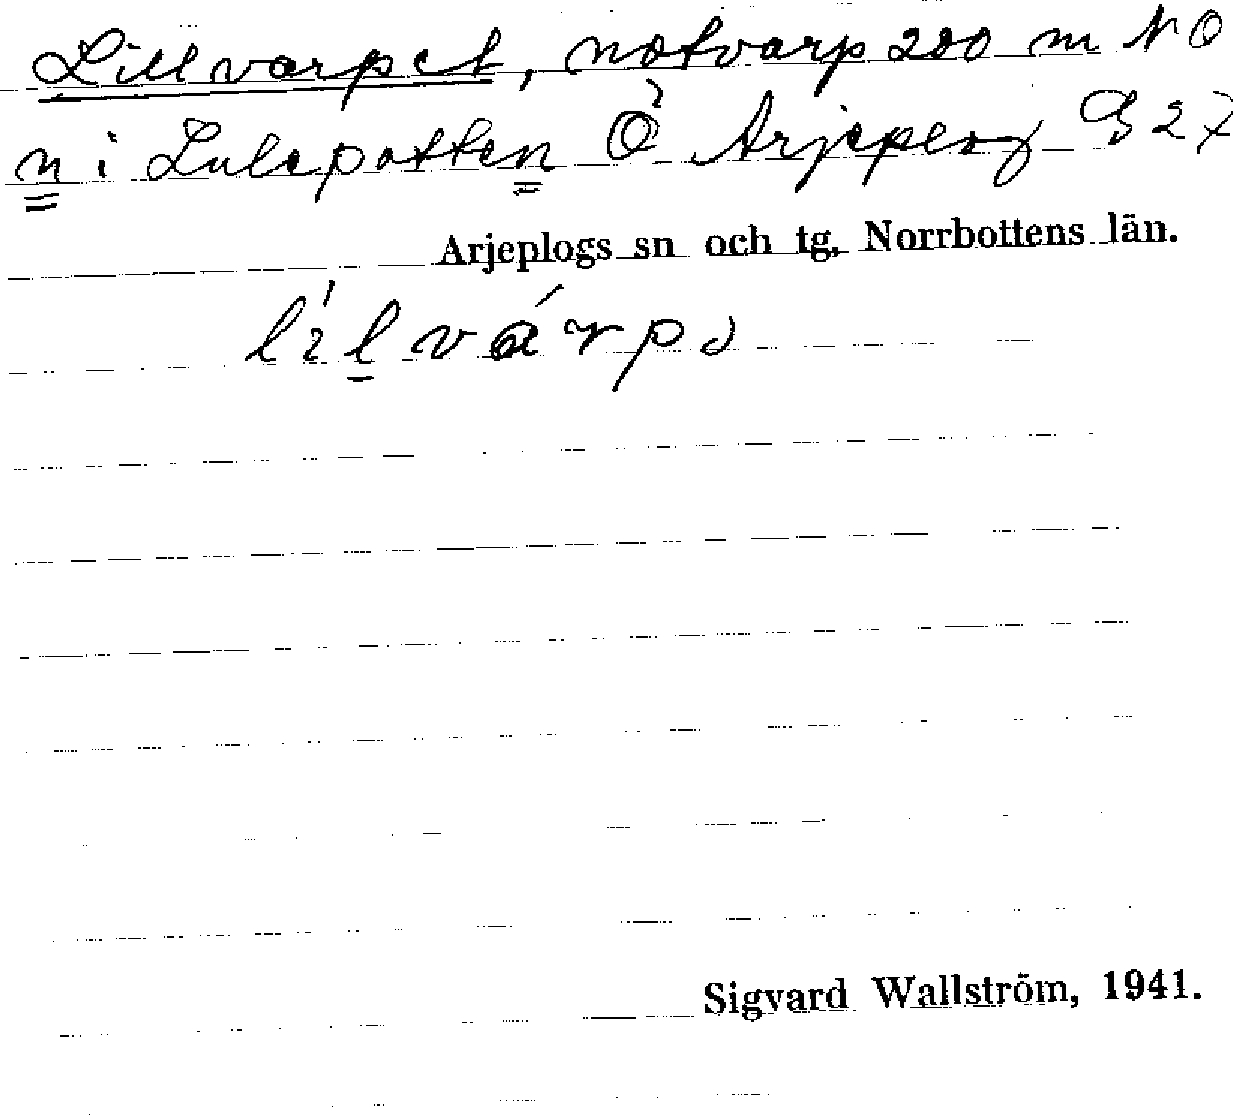 Lillvarpet, notvarp 200 m NO
n i Lulepotten Ö Arjeplog G 27
Arjeplogs sn och tg, Norrbottens län.
lílvárpə
Sigvard Wallström, 1941.